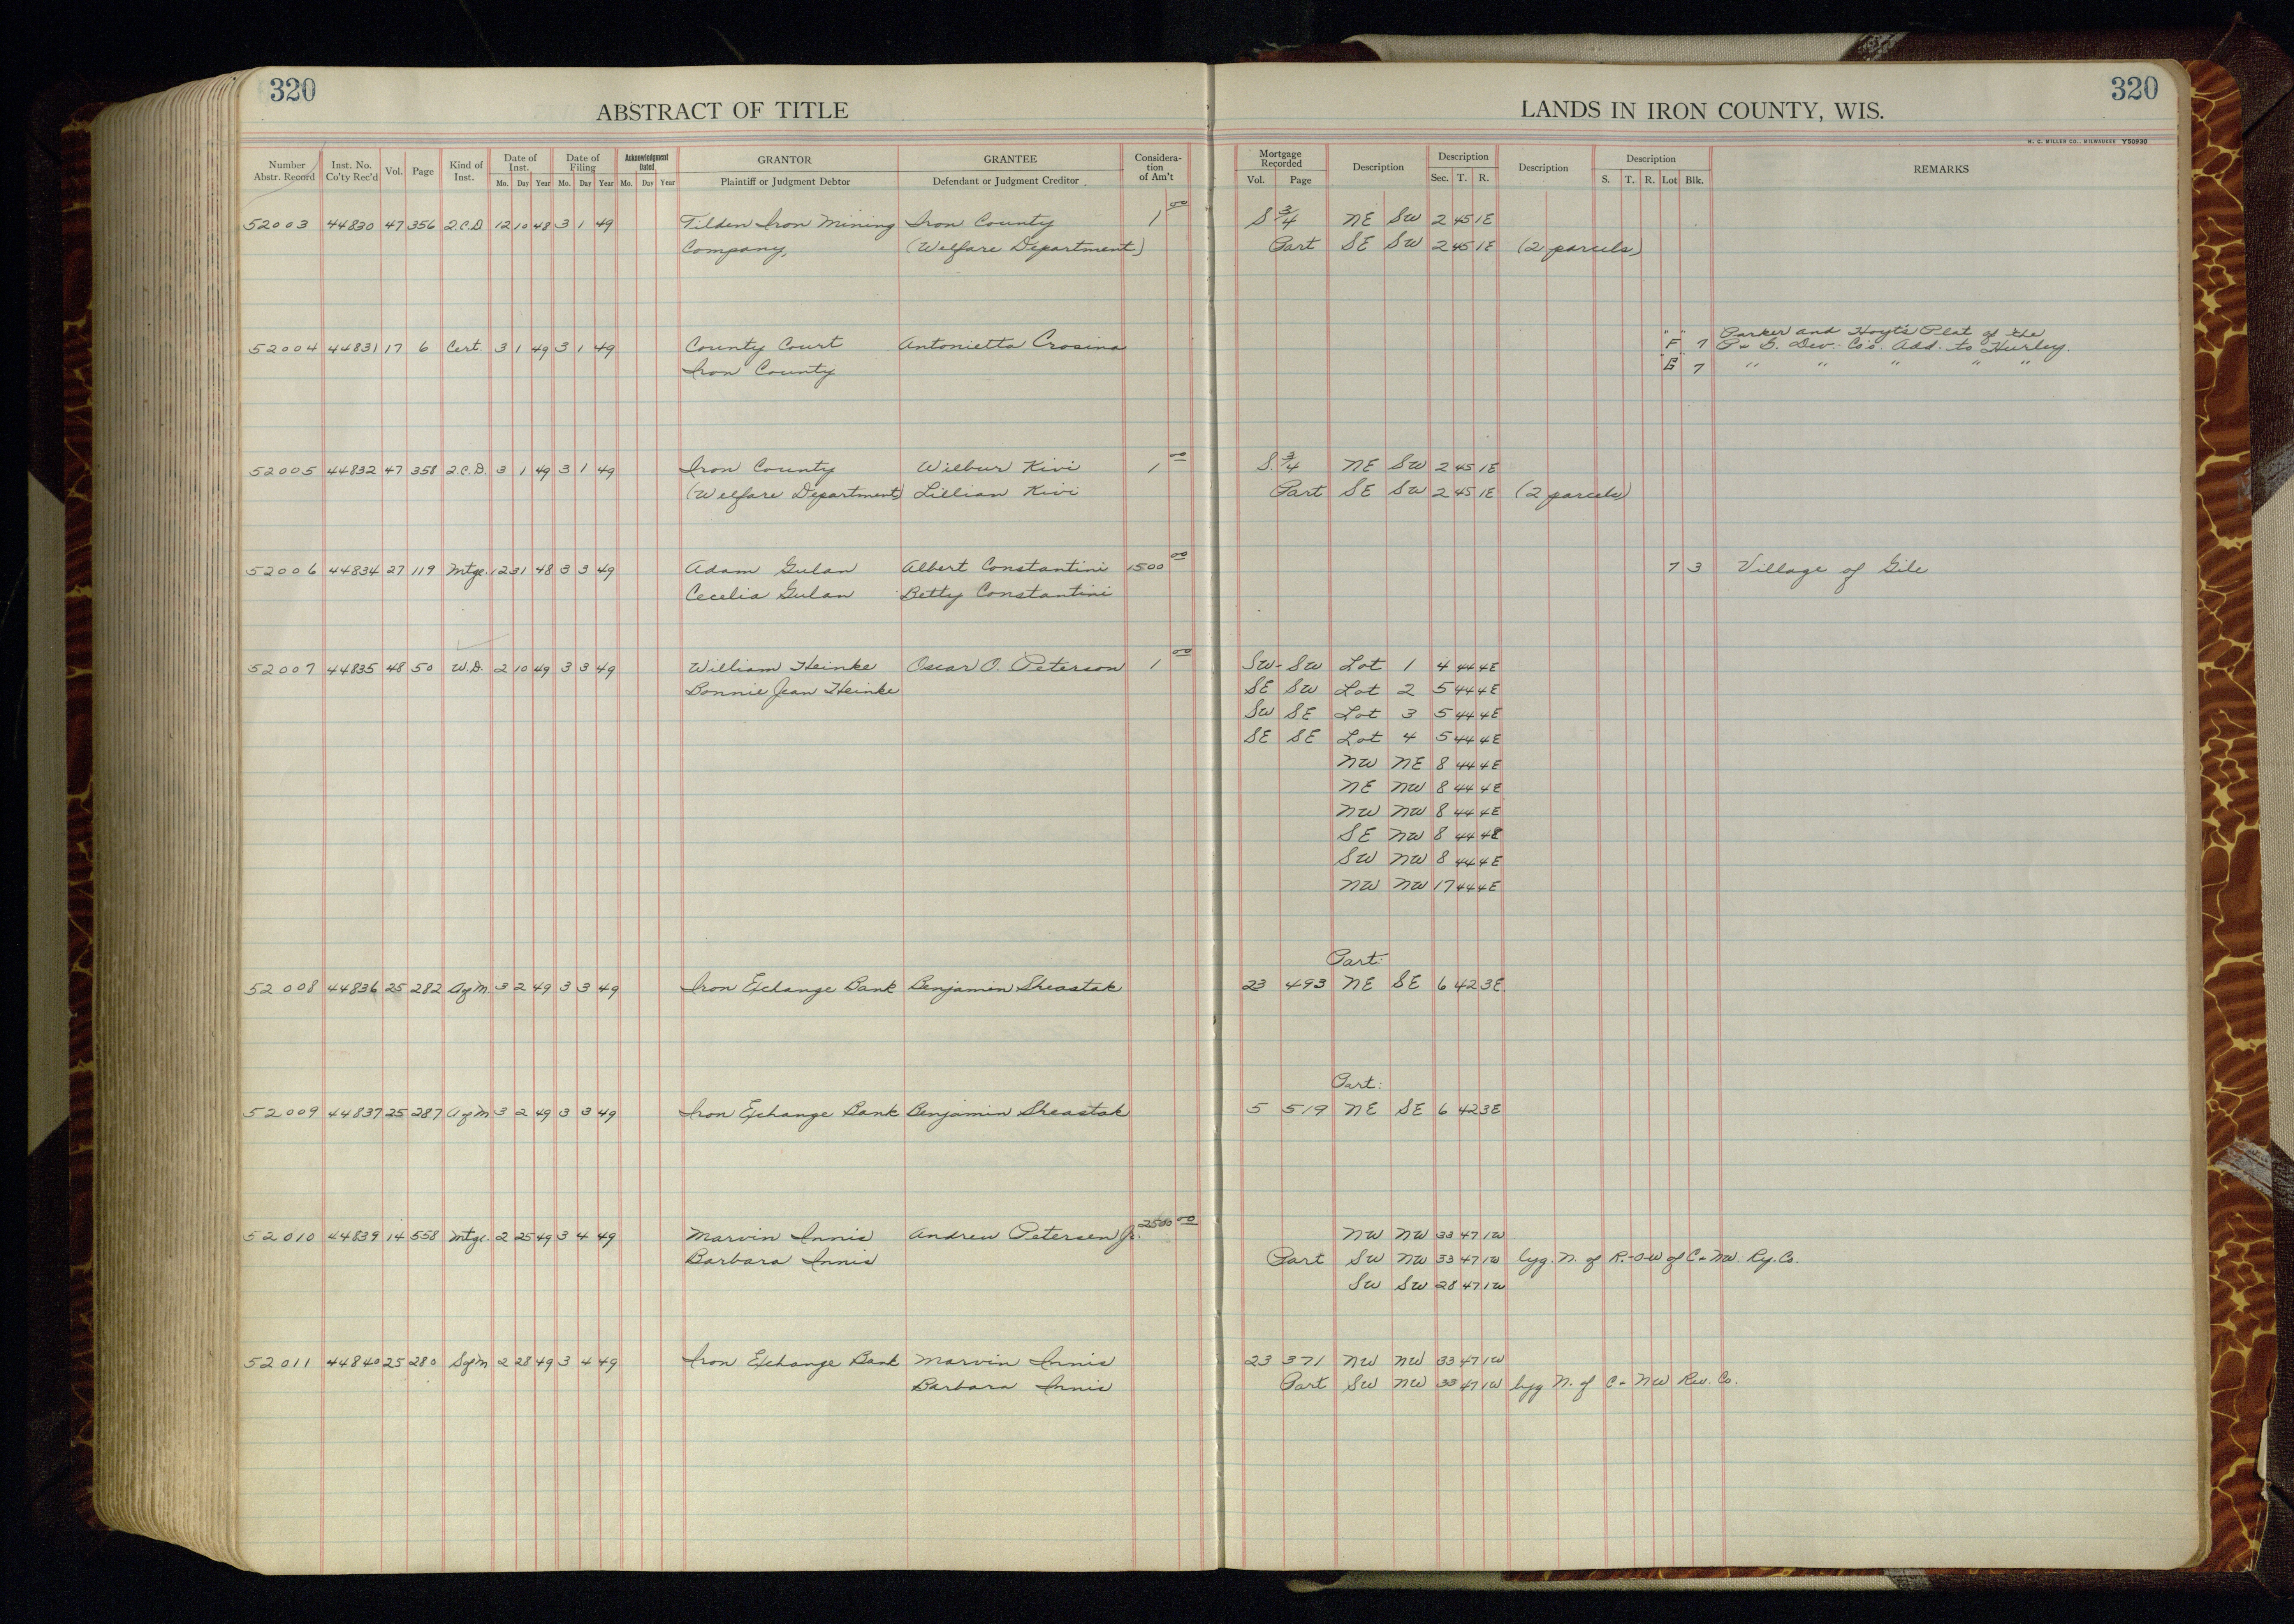 320
ABSTRACT OF TITLE
LANDS IN IRON COUNTY, WIS.
320
H. C. MILLER CO., MILWAUKEE Y50930
Number Abstr. Record
Inst. No. Co'ty Rec'd
Vol.
Page
Kind of Inst.
Date of Inst.
Mo. Day Year
Date of Filing
Mo. Day Year
Acknowledgment Dated
Mo. Day Year
GRANTOR
Plaintiff or Judgment Debtor
GRANTEE
Defendant or Judgment Creditor
Considera-tion of Am't
Mortgage Recorded
Vol. Page
Description
Description
Sec. T. R.
Description
Description
S. T. R. Lot Blk.
REMARKS
52003 44830 47 356 Q.C.D. 12 10 48 3 1 49 Tilden Iron Mining Iron County 1 00 S 3/4 NE SW 2 45 1E
Company, (Welfare Department) Part SE SW 2 45 1E (2 parcels)
Parker and Hoyt's Plat of the
52004 44831 17 6 Cert. 3 1 49 3 1 49 County Court Antonietta Crosina "F" 7 Dev. Co's. Add. to Hurley.
Iron County 7 " " " " "
52005 44832 47 358 Q.C.D. 3 1 49 3 1 49 Iron County Wilbur Kivi 1 00 S. 3/4 NE SW 2 45 1E
(Welfare Department) Lillian Kivi Part SE SW 2 45 1E (2 parcels)
52006 44834 27 119 Mtge. 12 31 48 3 3 49 Adam Gulan Albert Constantini 1500 00 7 3 Village of Gile
Cecelia Gulan Betty Constantini
52007 44835 48 50 W.D. 2 10 49 3 3 49 William Heinke Oscar O. Peterson 1 00 SW- SW Lot 1 4 44 4E
Bonnie Jean Heinke SE SW Lot 2 5 44 4E
SW SE Lot 3 5 44 4E
SE SE Lot 4 5 44 4E
NW NE 8 44 4E
NE NW 8 44 4E
NW NW 8 44 4E
SE NW 8 44 4E
SW NW 8 44 4E
NW NW 17 44 4E
Part:
52008 44836 25 282 3 2 49 3 3 49 Iron Exchange Bank Benjamin Sheastak 23 493 NE SE 6 42 3E
Part:
52009 44837 25 287 3 2 49 3 3 49 Iron Exchange Bank Benjamin Sheastak 5 519 NE SE 6 42 3E
52010 44839 14 558 Mtge. 2 25 49 3 4 49 Marvin Innis Andrew Petersen Jr. 2500 00 NW NW 33 47 1W
Barbara Innis Part SW NW 33 47 1W lyg. N. of R.-O-W of C & NW. Ry. Co.
SW SW 28 47 1W
52011 44840 25 280 2 28 49 3 4 49 Iron Exchange Bank Marvin Innis 23 371 NW NW 33 47 1W
Barbara Innis Part SW NW 33 47 1W lyg N. of C & NW Co.